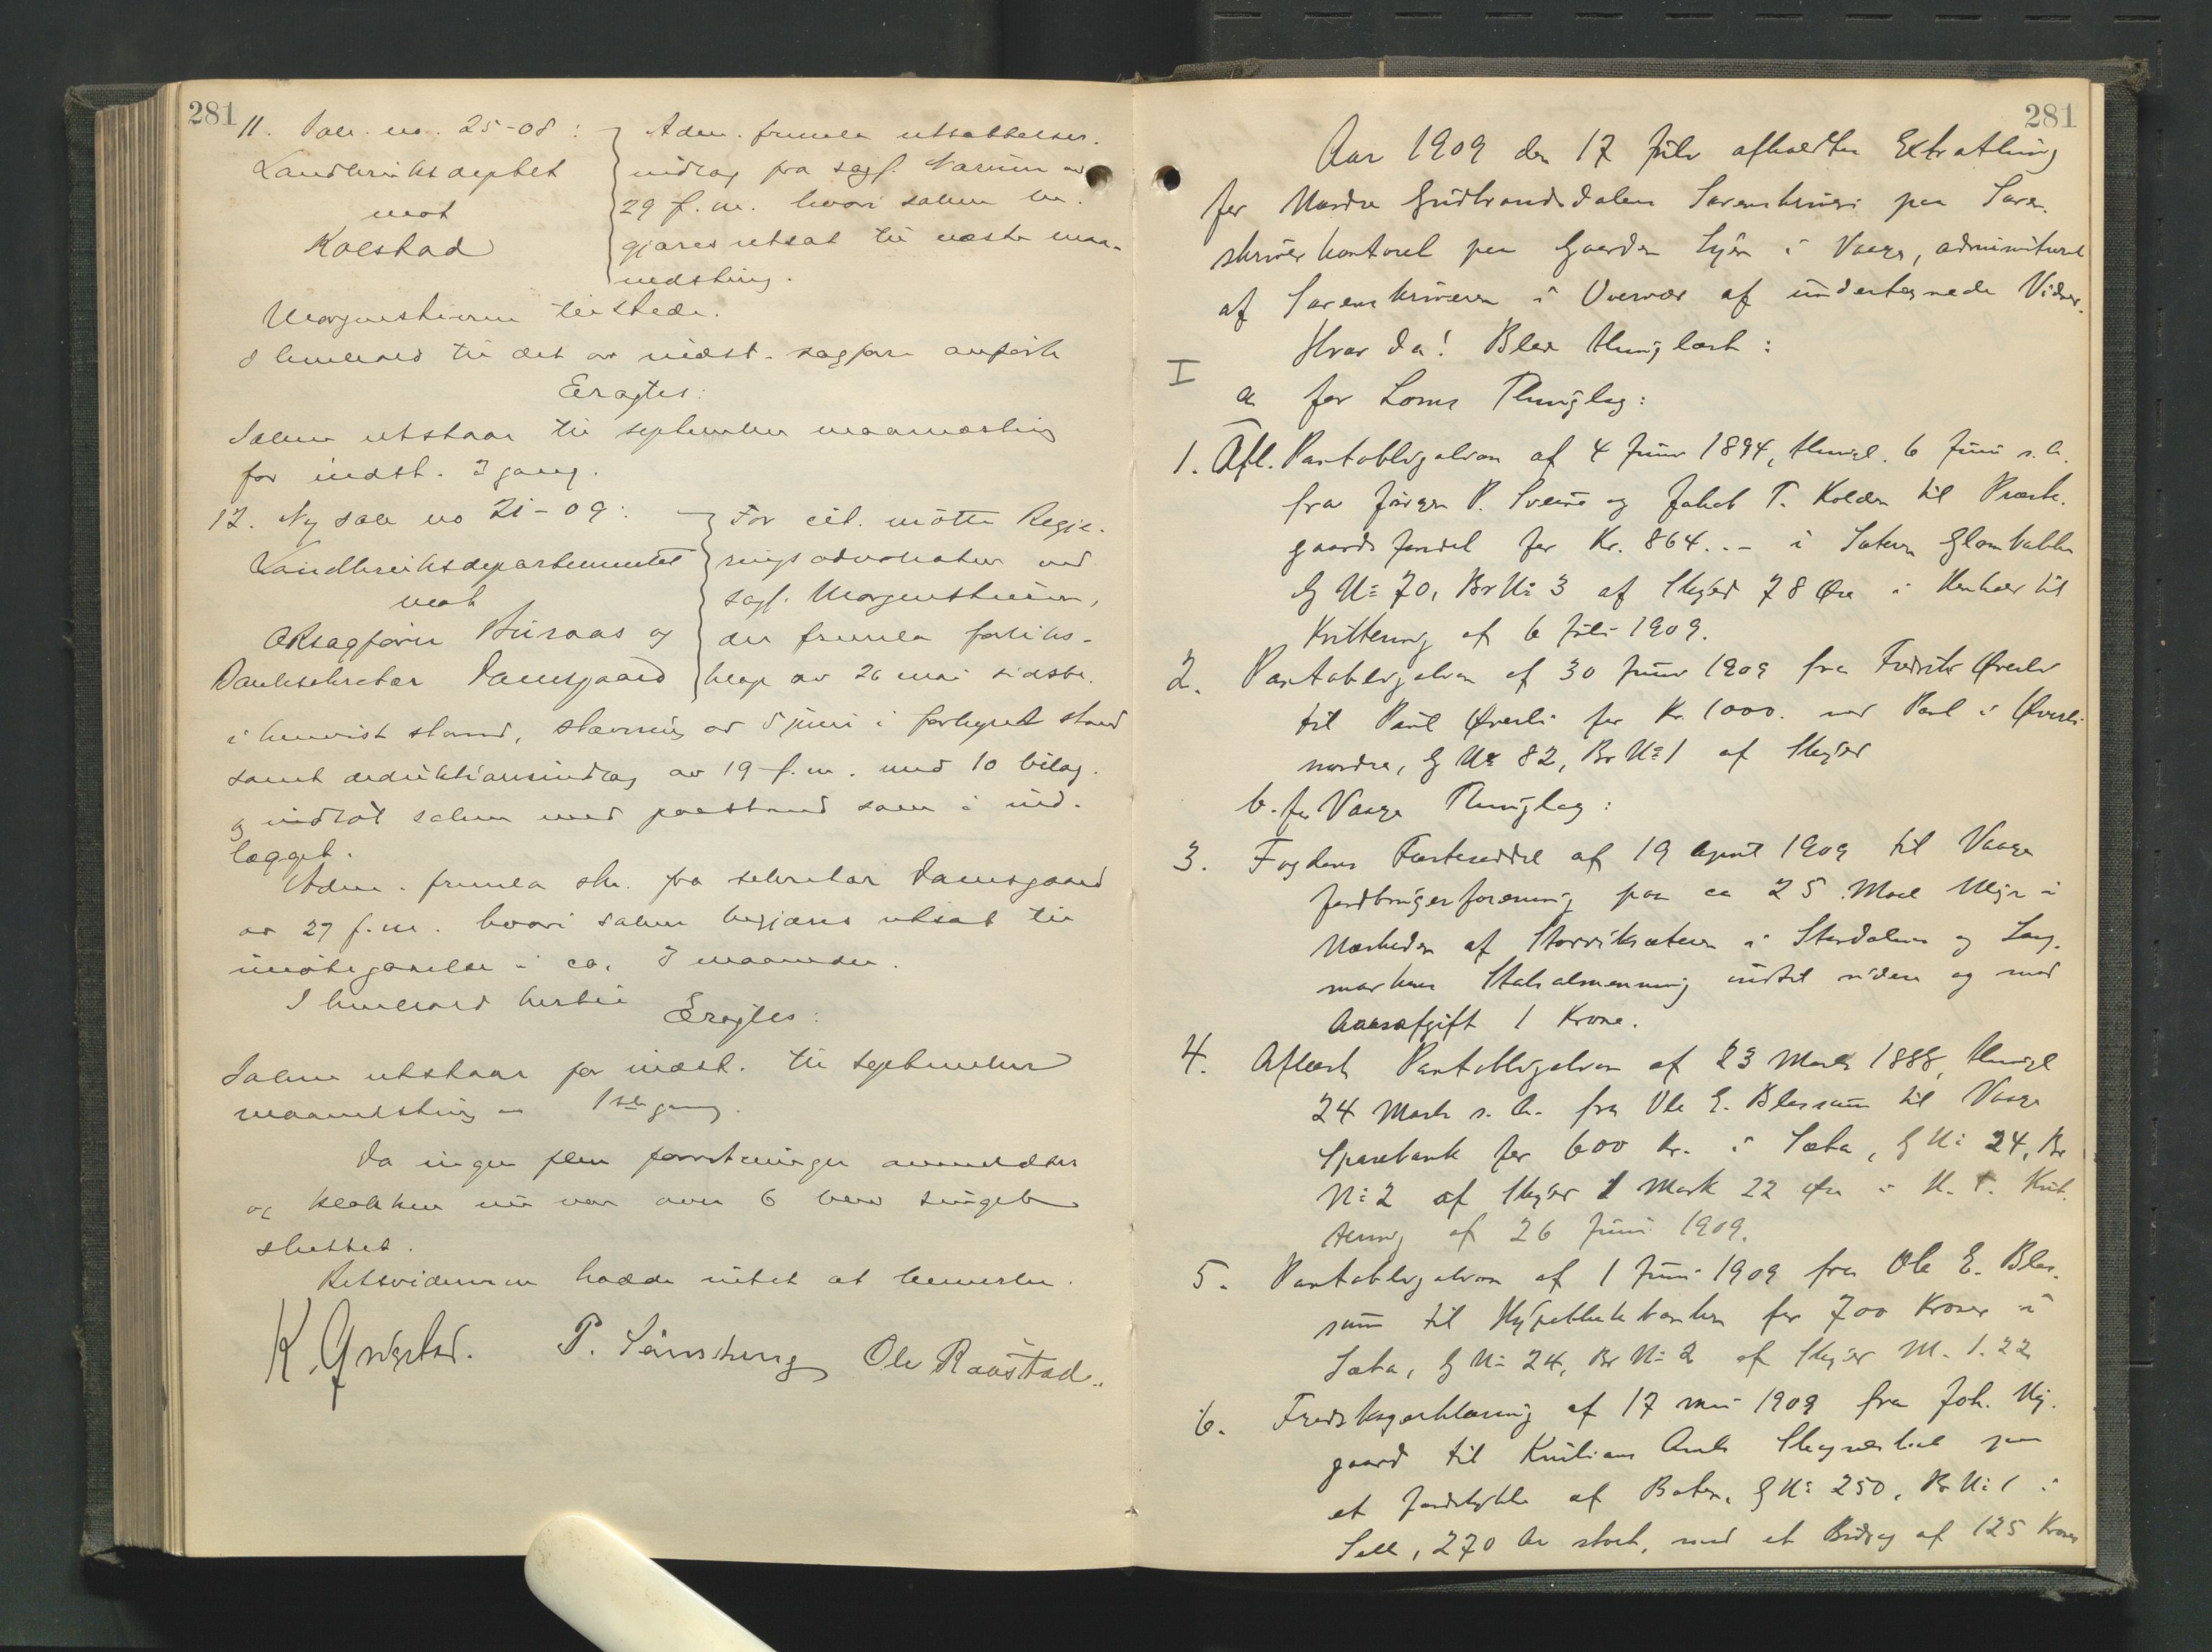 281
11. Sak no. 25-08:
Landbruksdeptet
mot
Kolstad
Adm. fremla utsættelses-
indlæg fra sagf. Narum av
29 f.m. hvori saken be-
gjæres utsat til næste maa-
nedsting.
Morgenstierne tilstede.
I henhold til det av indst. sagfører anførte
Eragtes:
Saken utstaar til september maanedsting
for indst. 2 gang.
12. Ny sak no 21-09:
Landbruksdepartementet
mot
Oksagfører Huraas og
Banksekretær Damsgaard
For cit. møtte Regje-
ringsadvokaten ved
sagf. Morgenstierne,
der fremla forliks-
klage av 26 mai sidste
i henvist stand, stævning av 5 juni i forkyndt stand
samt deduktionsindlæg av 19 f.m. med 10 bilag.
og indlot saken med paastand som i ind-
lægget.
Adm. fremla skr. fra sekretær Damsgaard
av 27 f.m. hvori saken begjæres utsat til
imøtegaaelse i ca. 3 maaneder.
I henhold hertil
Eragtes:
Saken utstaar for indst. til september
maanedsting 1ste gang.
Da ingen flere forretninger anmeldtes
og klokken nu var over 6 blev tinget
sluttet.
Retsvidnerne hadde intet at bemerke.
K. P. Ole Raastad.
281
Aar 1909 den 17 Juli afholdtes Extrathing
for Nordre Gudbrandsdalens Sorenskriveri paa Soren-
skriverkontoret paa Gaarden i Vaage, administreret
af Sorenskriveren i Overvær af undertegnede Vidner.
Hvor da! Blev thinglæst:
I
a for Loms Thinglag:
1. Afl. Pantobligation af 4 Juni 1894, thingl. 6 Juni s. A.
fra Jørgen P. Sveine og Jakob T. Kolden til Præste-
gaardsfondet for Kr. 864.. - i Sætern
G No 70, Br No 3 af Skyld 78 Øre i Henhold til
Kvittering af 6 Juli 1909.
2. Pantobligation af 30 Juni 1909 fra Fredrik Øverli
til Paul Øverli for Kr. 1000. med Pant i Øverli
nordre, G No 82, Br No 1 af Skyld
b. for Vaage Thinglag:
3. Fogdens Fæsteseddel af 19 April 1909 til Vaage
Jordbrugerforening paa ca 25 Maal Myr i
Nærheden af i og Lang-
markens Statsalmenning indtil videre og mod
Aarsafgift 1 Krone.
4. Aflæst Pantobligation af 23 Marts 1888, thingl
24 Marts s. A. fra Ole E. Blessum til Vaage
Sparebank for 600 Kr. i Sæta, G No 24, Br
No 2 af Skyld 1 Mark 22 Øre i H. t. Kvit-
tering af 26 Juni 1909.
5. Pantobligation af 1 Juni 1909 fra Ole E. Bles-
sum til Hypothekbanken for 700 Kroner i
Sæta, G No 24, Br No 2 af Skyld M. 1.22
6. Fraskyerklæring af 17 mai 1909 fra Joh. Ny-
gaard til Kristians Amts paa
et Jordstykke af G No 250, Br No 1 i
Sell, 270 Ar stort, med et Bidrag af 125 Kroner